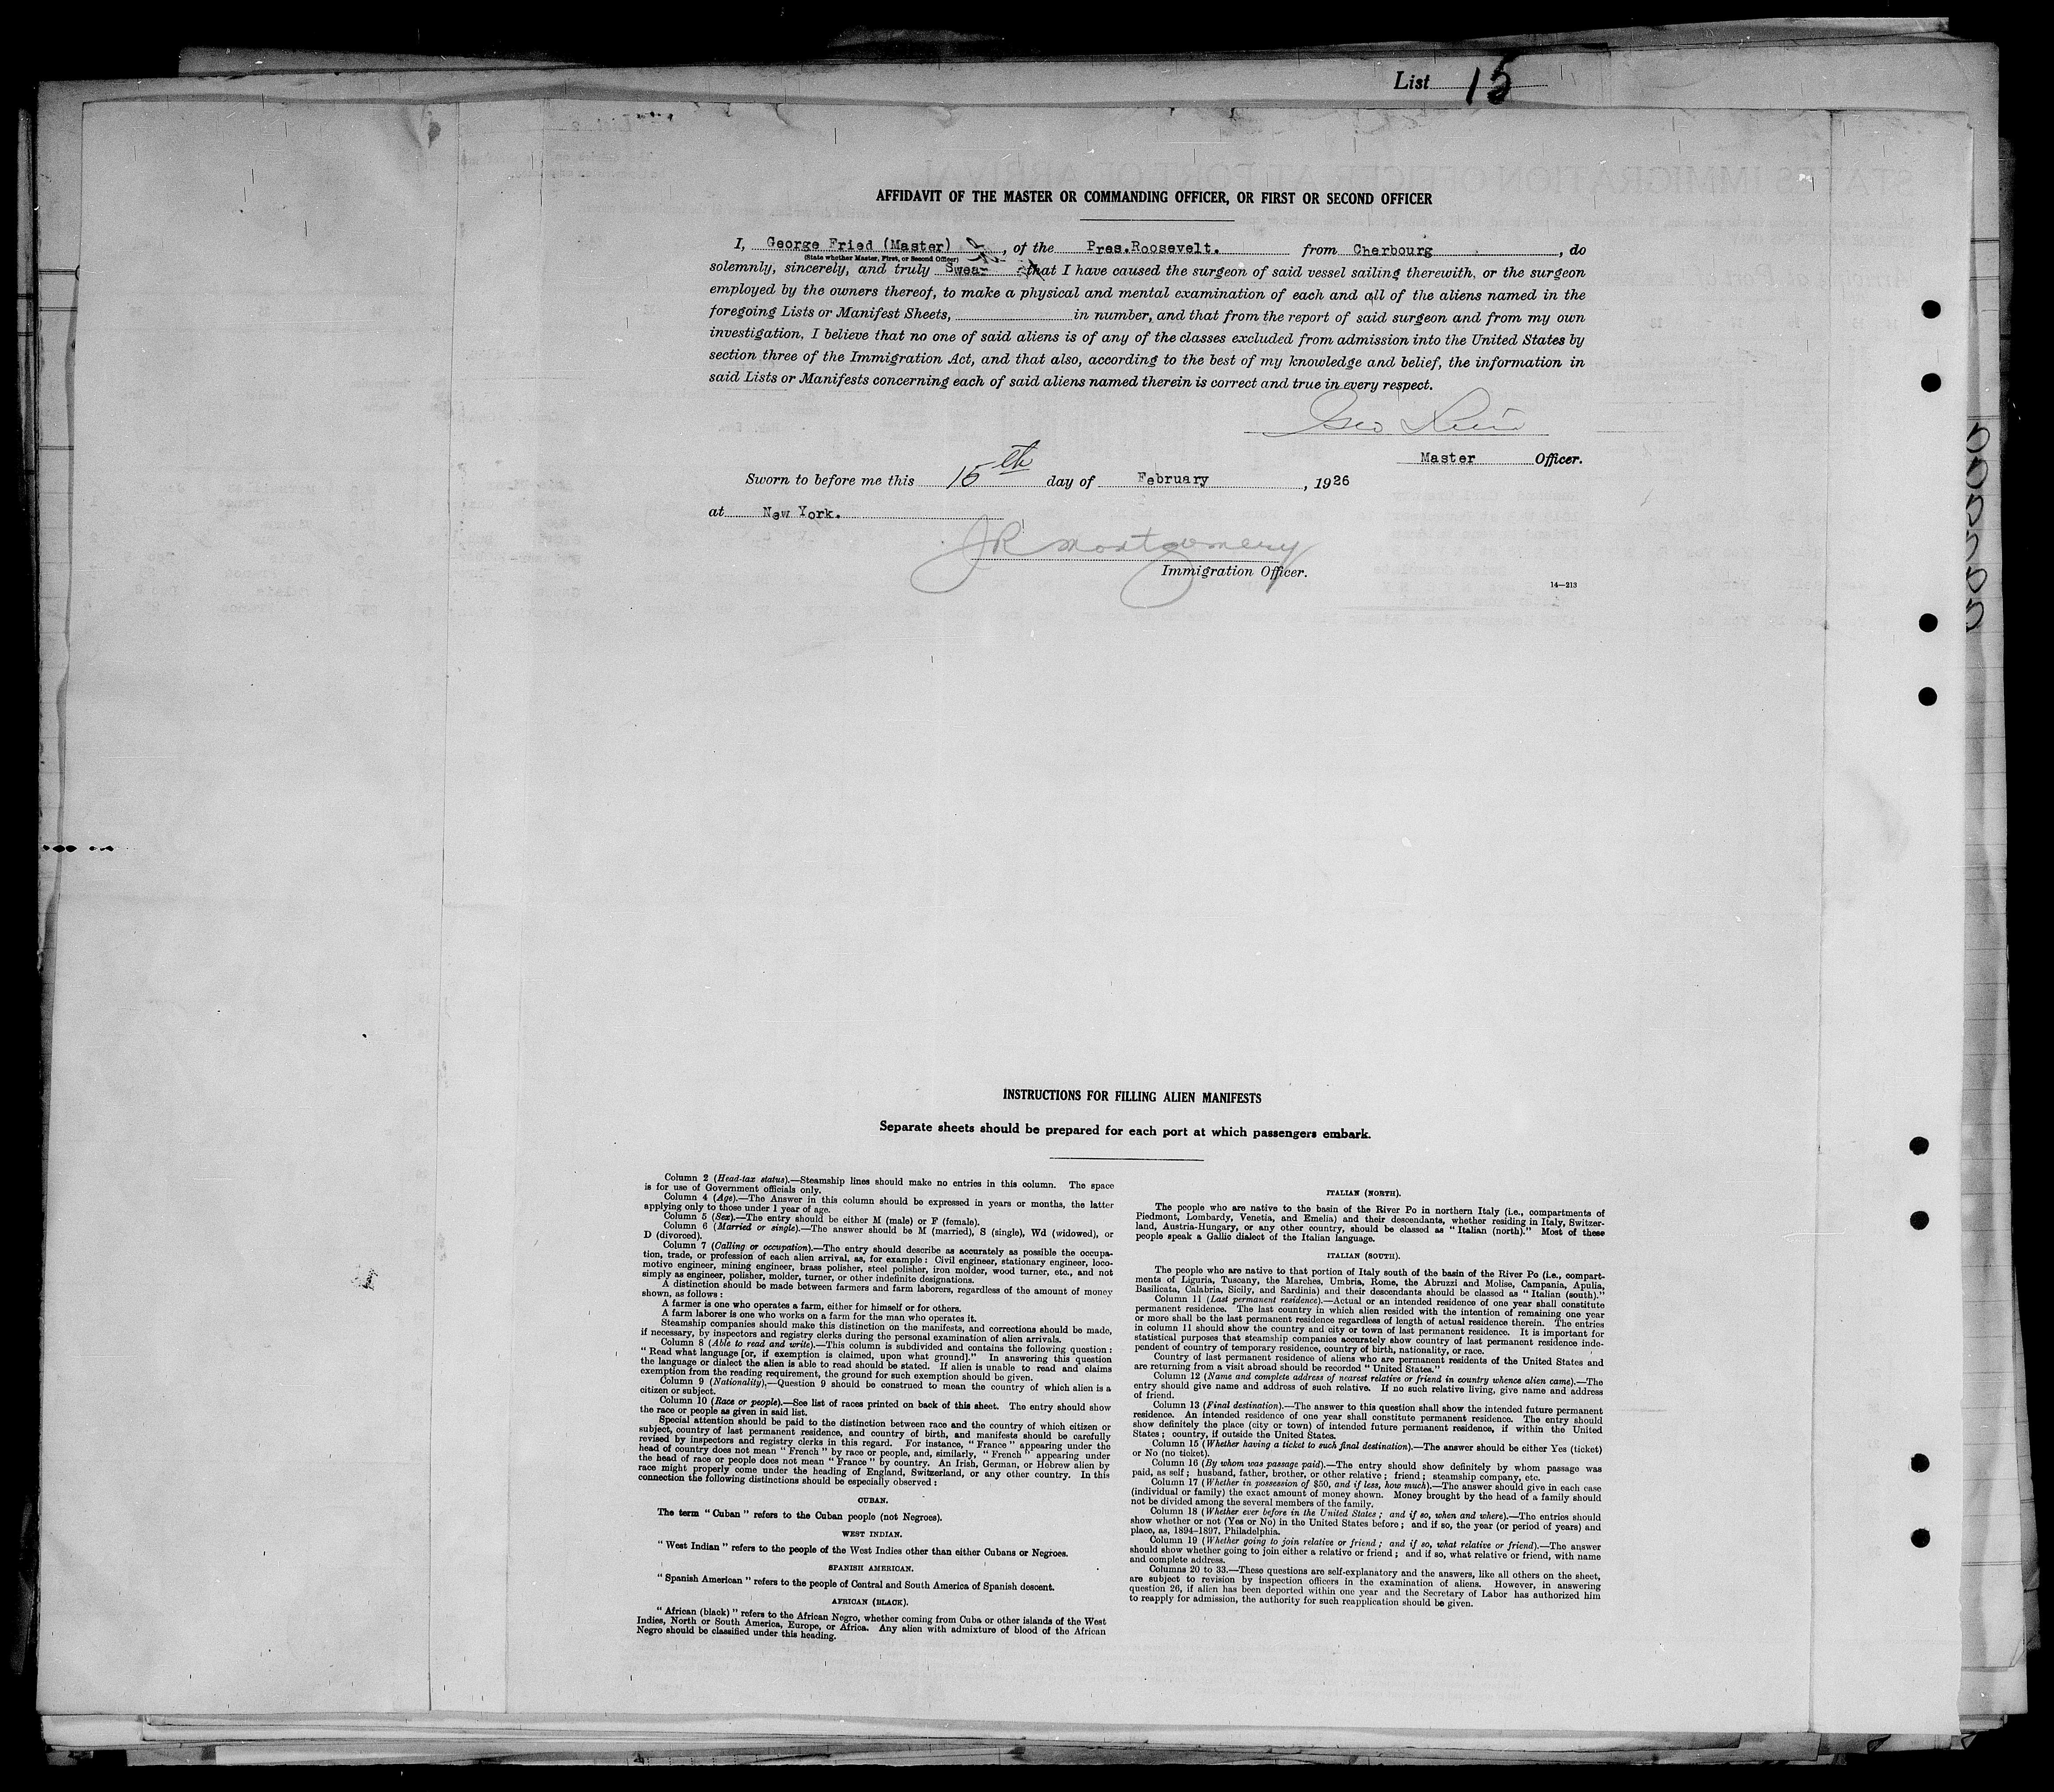 List 15
AFFIDAVIT OF THE MASTER OR COMMANDING OFFICER, OR FIRST OR SECOND OFFICER
I, George Fried (Master), of the Pres.Roosevelt. from Cherbourg, do
(State whether Master, First, or Second Officer)
solemnly, sincerely, and truly Swear that I have caused the surgeon of said vessel sailing therewith, or the surgeon
employed by the owners thereof, to make a physical and mental examination of each and all of the aliens named in the
foregoing Lists or Manifest Sheets, in number, and that from the report of said surgeon and from my own
investigation, I believe that no one of said aliens is of any of the classes excluded from admission into the United States by
section three of the Immigration Act, and that also, according to the best of my knowledge and belief, the information in
said Lists or Manifests concerning each of said aliens named therein is correct and true in every respect.
Geo Fried
Master Officer.
Sworn to before me this 15th day of February, 1926
at New York.
JR Montgomery
Immigration Officer.
14—213
INSTRUCTIONS FOR FILLING ALIEN MANIFESTS
Separate sheets should be prepared for each port at which passengers embark.
Column 2 (Head-tax status).—Steamship lines should make no entries in this column. The space
is for use of Government officials only.
Column 4 (Age).—The Answer in this column should be expressed in years or months, the latter
applying only to those under 1 year of age.
Column 5 (Sex).—The entry should be either M (male) or F (female).
Column 6 (Married or single).—The answer should be M (married), S (single), Wd (widowed), or
D (divorced).
Column 7 (Calling or occupation).—The entry should describe as accurately as possible the occupa-
tion, trade, or profession of each alien arrival, as, for example: Civil engineer, stationary engineer, loco-
motive engineer, mining engineer, brass polisher, steel polisher, iron molder, wood turner, etc., and not
simply as engineer, polisher, molder, turner, or other indefinite designations.
A distinction should be made between farmers and farm laborers, regardless of the amount of money
shown, as follows:
A farmer is one who operates a farm, either for himself or for others.
A farm laborer is one who works on a farm for the man who operates it.
Steamship companies should make this distinction on the manifests, and corrections should be made,
if necessary, by inspectors and registry clerks during the personal examination of alien arrivals.
Column 8 (Able to read and write).—This column is subdivided and contains the following question:
"Read what language [or, if exemption is claimed, upon what ground]." In answering this question
the language or dialect the alien is able to read should be stated. If alien is unable to read and claims
exemption from the reading requirement, the ground for such exemption should be given.
Column 9 (Nationality).—Question 9 should be construed to mean the country of which alien is a
citizen or subject.
Column 10 (Race or people).—See list of races printed on back of this sheet. The entry should show
the race or people as given in said list.
Special attention should be paid to the distinction between race and the country of which citizen or
subject, country of last permanent residence, and country of birth, and manifests should be carefully
revised by inspectors and registry clerks in this regard. For instance, "France" appearing under the
head of country does not mean "French" by race or people, and, similarly, "French" appearing under
the head of race or people does not mean "France" by country. An Irish, German, or Hebrew alien by
race might properly come under the heading of England, Switzerland, or any other country. In this
connection the following distinctions should be especially observed:
CUBAN.
The term "Cuban" refers to the Cuban people (not Negroes).
WEST INDIAN.
"West Indian" refers to the people of the West Indies other than either Cubans or Negroes.
SPANISH AMERICAN.
"Spanish American" refers to the people of Central and South America of Spanish descent.
AFRICAN (BLACK).
"African (black)" refers to the African Negro, whether coming from Cuba or other islands of the West
Indies, North or South America, Europe, or Africa. Any alien with admixture of blood of the African
Negro should be classified under this heading.
ITALIAN (NORTH).
The people who are native to the basin of the River Po in northern Italy (i.e., compartments of
Piedmont, Lombardy, Venetia, and Emelia) and their descendants, whether residing in Italy, Switzer-
land, Austria-Hungary, or any other country, should be classed as "Italian (north)." Most of these
people speak a Gallic dialect of the Italian language.
ITALIAN (SOUTH).
The people who are native to that portion of Italy south of the basin of the River Po (i.e., compart-
ments of Liguria, Tuscany, the Marches, Umbria, Rome, the Abruzzi and Molise, Campania, Apulia,
Basilicata, Calabria, Sicily, and Sardinia) and their descendants should be classed as "Italian (south)."
Column 11 (Last permanent residence).—Actual or an intended residence of one year shall constitute
permanent residence. The last country in which alien resided with the intention of remaining one year
or more shall be the last permanent residence regardless of length of actual residence therein. The entries
in column 11 should show the country and city or town of last permanent residence. It is important for
statistical purposes that steamship companies accurately show country of last permanent residence inde-
pendent of country of temporary residence, country of birth, nationality, or race.
Country of last permanent residence of aliens who are permanent residents of the United States and
are returning from a visit abroad should be recorded "United States."
Column 12 (Name and complete address of nearest relative or friend in country whence alien came).—The
entry should give name and address of such relative. If no such relative living, give name and address
of friend.
Column 13 (Final destination).—The answer to this question shall show the intended future permanent
residence. An intended residence of one year shall constitute permanent residence. The entry should
show definitely the place (city or town) of intended future permanent residence, if within the United
States; country, if outside the United States.
Column 15 (Whether having a ticket to such final destination).—The answer should be either Yes (ticket)
or No (no ticket).
Column 16 (By whom was passage paid).—The entry should show definitely by whom passage was
paid, as self; husband, father, brother, or other relative; friend; steamship company, etc.
Column 17 (Whether in possession of $50, and if less, how much).—The answer should give in each case
(individual or family) the exact amount of money shown. Money brought by the head of a family should
not be divided among the several members of the family.
Column 18 (Whether ever before in the United States; and if so, when and where).—The entries should
show whether or not (Yes or No) in the United States before; and if so, the year (or period of years) and
place, as, 1894-1897, Philadelphia.
Column 19 (Whether going to join relative or friend; and if so, what relative or friend).—The answer
should show whether going to join either a relative or friend; and if so, what relative or friend, with name
and complete address.
Columns 20 to 33.—These questions are self-explanatory and the answers, like all others on the sheet,
are subject to revision by inspection officers in the examination of aliens. However, in answering
question 26, if alien has been deported within one year and the Secretary of Labor has authorized him
to reapply for admission, the authority for such reapplication should be given.